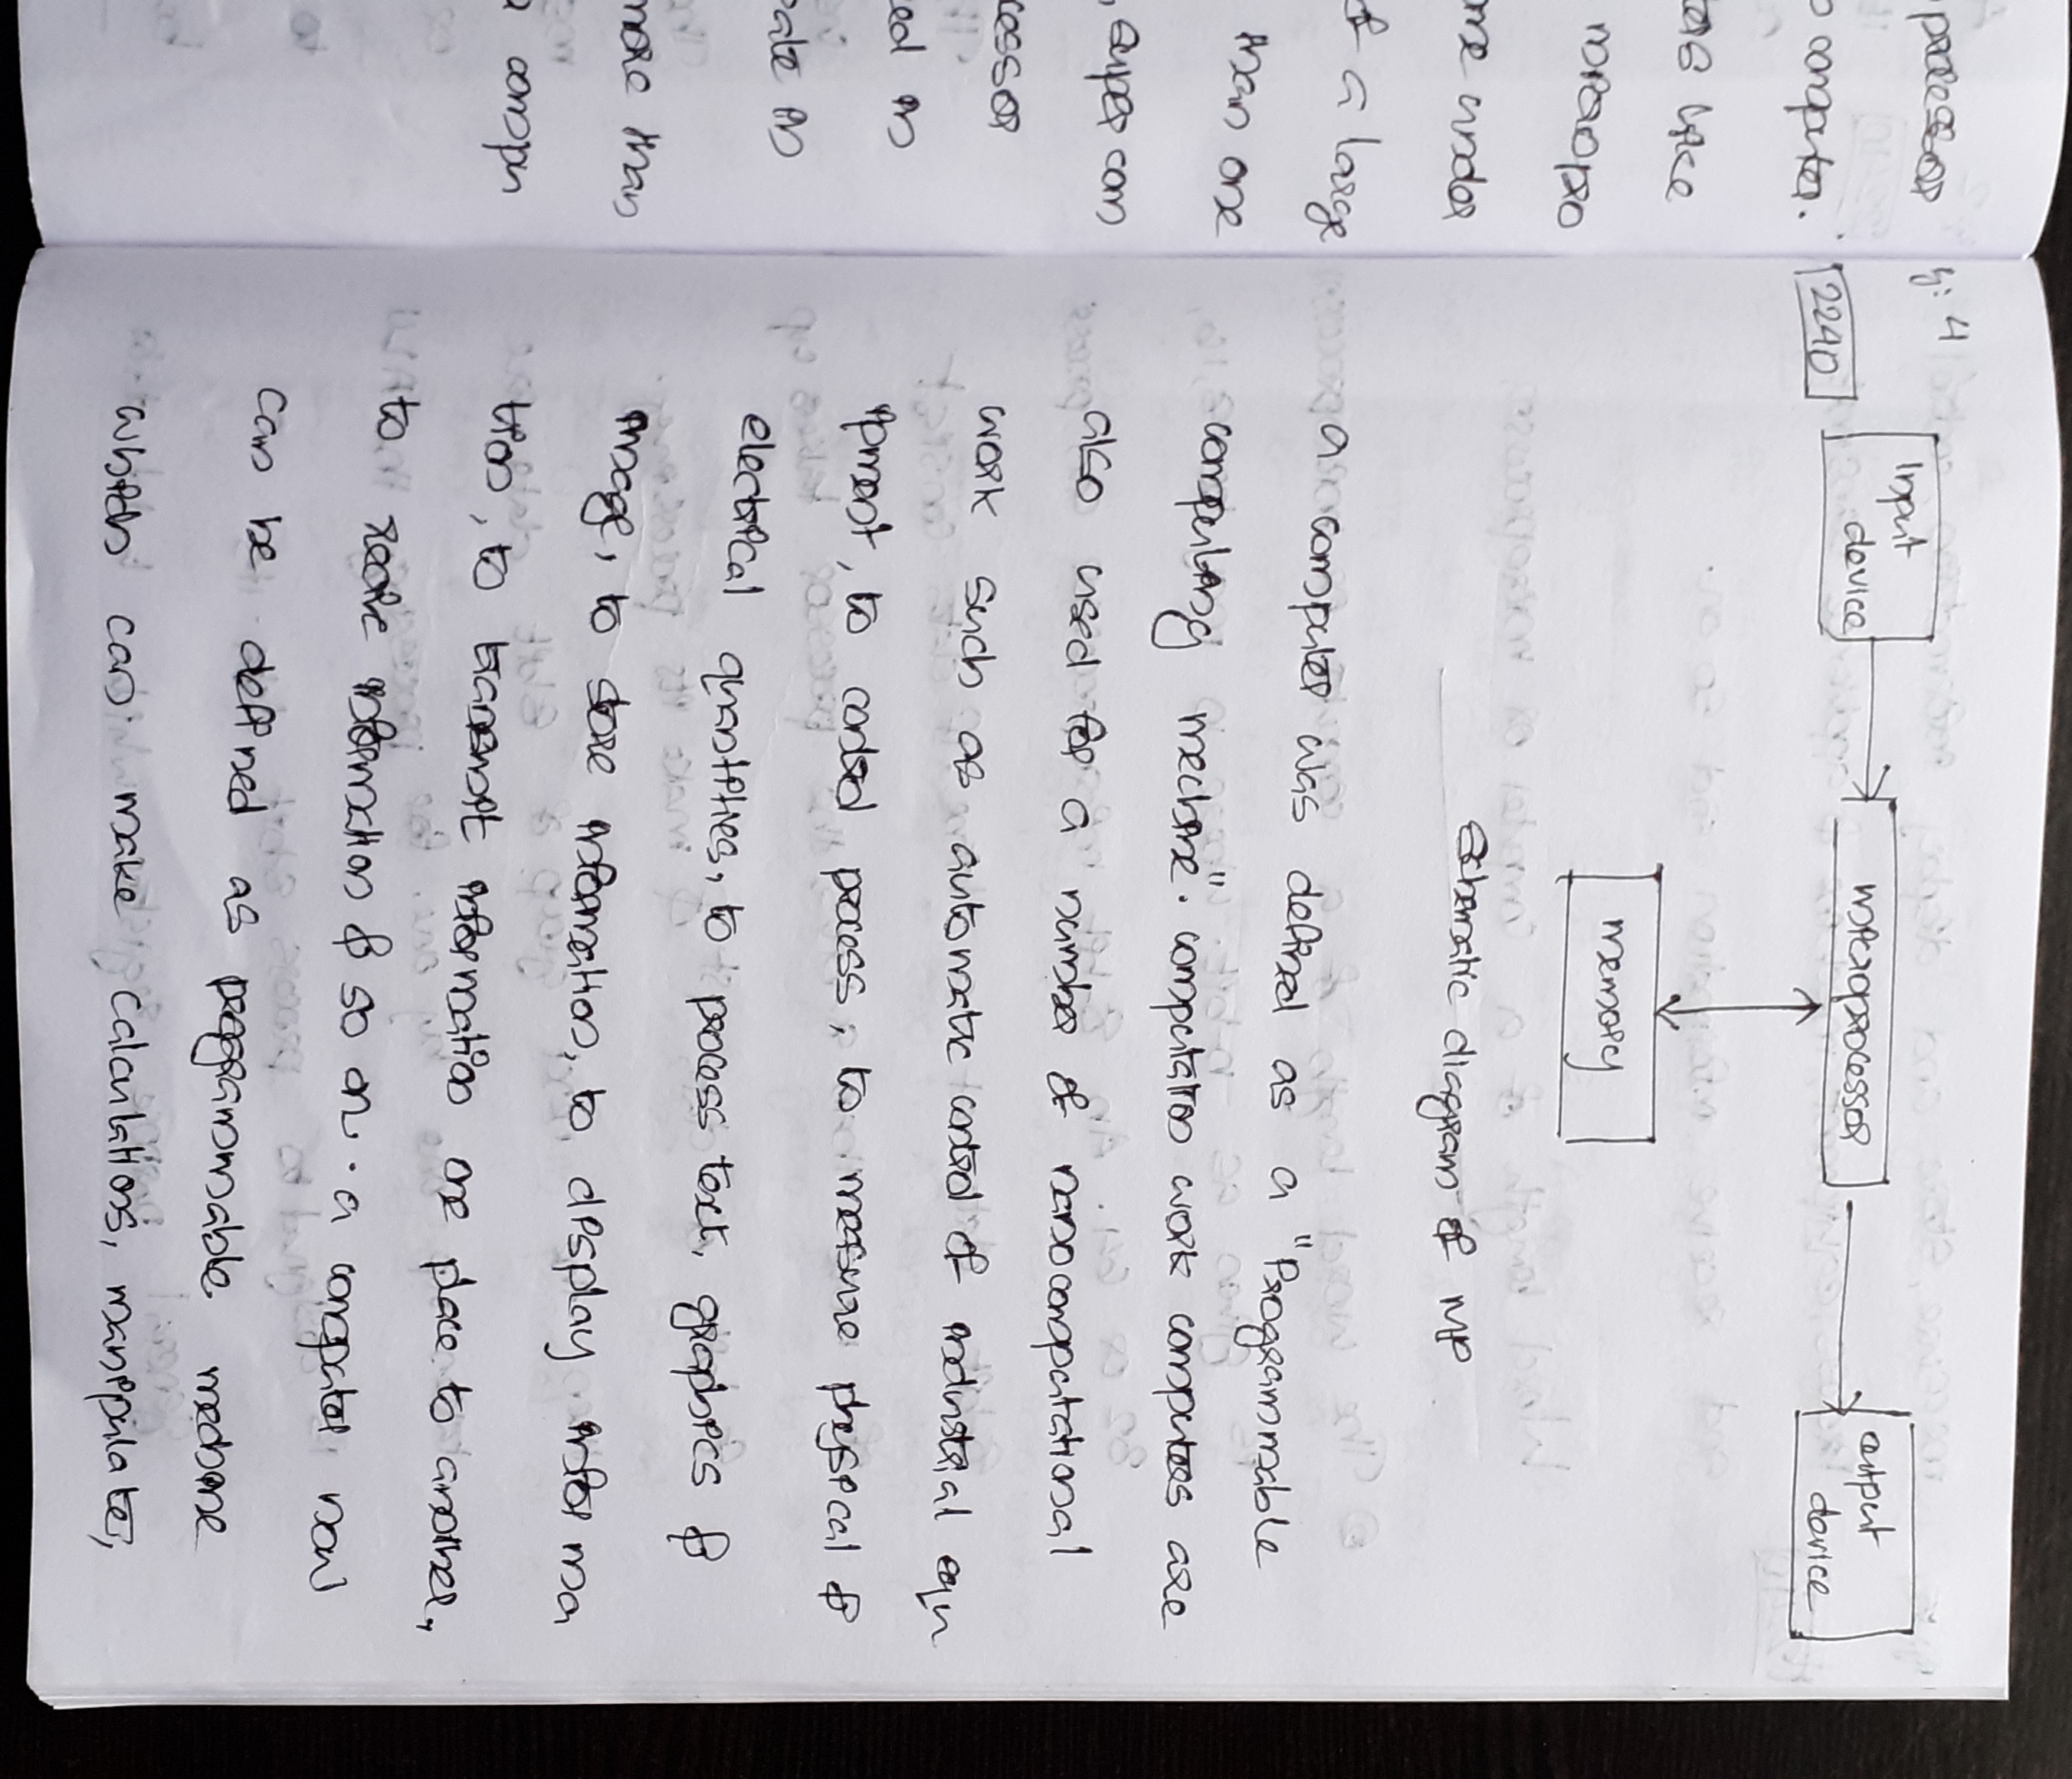 processor
computer.
like
micropro
under
of a large
than one
, super com
cessor
ed in
ate in
more than
compu
y: 4
2240
Input
device
microprocessor
output
device
memory
Schematic diagram of MP
a computer was defined as a "Programmable
computing mechine". computation work computers are
also used for a number of nanocomputational
work such as automatic control of industrial equ
ipment, to control process, to measure physical &
electrical quantities, to process text, graphics &
image, to store information, to display informa
tion, to transmit information one place to another,
to information & so on. a computer now
can be defined as programmable mechine
which can make calculations, manipulate,